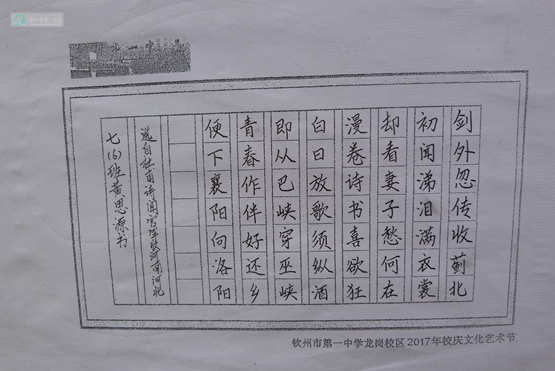 剑外忽传收蓟北
初闻涕泪满衣裳
却看妻子愁何在
漫卷诗书喜欲狂
白日放歌须纵酒
青春作伴好还乡
即从巴峡穿巫峡
便下襄阳向洛阳
选自杜甫诗闻官军收河南河北
七(6)班黄思源书
钦州市第一中学龙岗校区2017年校庆文化艺术节